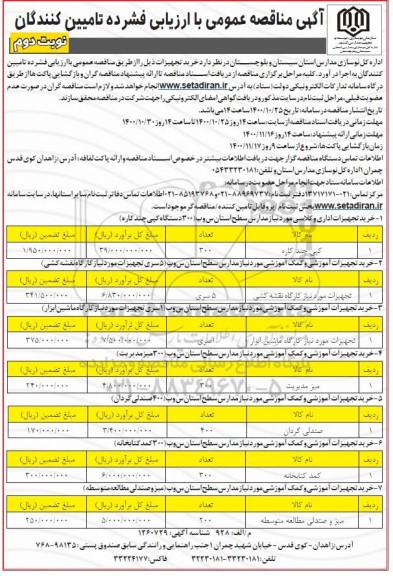 آگهی مناقصه عمومی با ارزیابی فشرده تامیین کنندگان
نوبت دوم
اداره کل نوسازی مدارس استان سیستان و بلوچستان در نظر دارد خرید تجهیزات ذیل را از طریق مناقصه عمومی با ارزیابی فشرده تامیین
کنندگان به اجرا در آورد. کلیه مراحل برگزاری مناقصه از دریافت اسناد مناقصه تا ارائه پیشنهاد مناقصه گران و بازگشایی پاکت ها از طریق
درگاه سامانه تدارکات الکترونیکی دولت (ستاد) به آدرس www.setadiran.ir انجام خواهد شد و لازم است مناقصه گران در صورت عدم
عضویت قبلی، مراحل ثبت نام در سایت مذکور و دریافت گواهی امضای الکترونیکی را جهت شرکت در مناقصه محقق سازند.
تاریخ انتشار مناقصه در سامانه: تاریخ ۱۴۰۰/۱۰/۲۵ ساعت ۱۴ می باشد.
مهلت زمانی دریافت اسناد مناقصه از سایت: ساعت ۱۴ روز ۱۴۰۰/۱۰/۲۵ تا ساعت ۱۴ روز ۱۴۰۰/۱۰/۳۰
مهلت زمانی ارائه پیشنهاد: ساعت ۱۴ روز ۱۴۰۰/۱۱/۱۴
زمان بازگشایی پاکت ها: شروع از ساعت ۹ روز ۱۴۰۰/۱۱/۱۷
اطلاعات تماس دستگاه مناقصه گزار جهت دریافت اطلاعات بیشتر در خصوص اسناد مناقصه و ارائه پاکت لفافه: آدرس: زاهدان کوی قدس
چمران ۱ اداره کل نوسازی مدارس استان و تلفن: ۰۵۴۳۳۲۳۰۱۸۱
اطلاعات سامانه ستاد جهت انجام مراحل عضویت در سامانه:
مرکز تماس: ۰۲۱-۱۳۷۱۷۱۷۱ دفتر ثبت نام: ۸۸۹۶۹۷۳۷-۰۲۱ و ۸۵۱۹۳۷۶۸-۰۲۱ اطلاعات تماس دفاتر ثبت نام سایر استانها، در سایت سامانه
www.setadiran.ir بخش ثبت نام/پروفایل تامین کننده/مناقصه گر موجود است.
۱- خرید تجهیزات اداری و کلاسی مورد نیاز مدارس سطح استان س و ب (۳۰۰ دستگاه کپی چند کاره)
ردیف نام کالا تعداد مبلغ کل برآورد (ریال) مبلغ تضمین (ریال)
۱ کپی چند کاره ۳۰۰ ۳۹/۰۰۰/۰۰۰/۰۰۰ ۱/۹۵۰/۰۰۰/۰۰۰
۲- خرید تجهیزات آموزشی و کمک آموزشی مورد نیاز مدارس سطح استان س و ب (۵ سری تجهیزات مورد نیاز کارگاه نقشه کشی)
ردیف نام کالا تعداد مبلغ کل برآورد (ریال) مبلغ تضمین (ریال)
۱ تجهیزات مورد نیاز کارگاه نقشه کشی ۵ سری ۶/۸۳۰/۰۰۰/۰۰۰ ۳۴۱/۵۰۰/۰۰۰
۳- خرید تجهیزات آموزشی و کمک آموزشی مورد نیاز مدارس سطح استان س و ب (۱ سری تجهیزات مورد نیاز کارگاه ماشین ابزار)
ردیف نام کالا تعداد مبلغ کل برآورد (ریال) مبلغ تضمین (ریال)
۱ تجهیزات مورد نیاز کارگاه ماشین ابزار ۱ سری ۷/۵۰۰/۰۰۰/۰۰۰ ۳۷۵/۰۰۰/۰۰۰
۴- خرید تجهیزات آموزشی و کمک آموزشی مورد نیاز مدارس سطح استان س و ب (۳۰۰ میز مدیریت)
ردیف نام کالا تعداد مبلغ کل برآورد (ریال) مبلغ تضمین (ریال)
۱ میز مدیریت ۳۰۰ ۴/۸۰۰/۰۰۰/۰۰۰ ۲۴۰/۰۰۰/۰۰۰
۵- خرید تجهیزات آموزشی و کمک آموزشی مورد نیاز مدارس سطح استان س و ب (۴۰۰ صندلی گردان)
ردیف نام کالا تعداد مبلغ کل برآورد (ریال) مبلغ تضمین (ریال)
۱ صندلی گردان ۴۰۰ ۳/۴۰۰/۰۰۰/۰۰۰ ۱۷۰/۰۰۰/۰۰۰
۶- خرید تجهیزات آموزشی و کمک آموزشی مورد نیاز مدارس سطح استان س و ب (۳۰۰ کمد کتابخانه)
ردیف نام کالا تعداد مبلغ کل برآورد (ریال) مبلغ تضمین (ریال)
۱ کمد کتابخانه ۳۰۰ ۶/۰۰۰/۰۰۰/۰۰۰ ۳۰۰/۰۰۰/۰۰۰
۷- خرید تجهیزات آموزشی و کمک آموزشی مورد نیاز مدارس سطح استان س و ب (میز و صندلی مطالعه متوسطه)
ردیف نام کالا تعداد مبلغ کل برآورد (ریال) مبلغ تضمین (ریال)
۱ میز و صندلی مطالعه متوسطه ۲۰۰ ۵/۰۰۰/۰۰۰/۰۰۰ ۲۵۰/۰۰۰/۰۰۰
م / الف: ۹۲۸ شناسه آگهی: ۱۲۶۰۷۲۹
آدرس: زاهدان - کوی قدس - خیابان شهید چمران ۱ جنب راهنمایی و رانندگی سابق صندوق پستی: ۹۸۱۳۵-۷۶۸
تلفن: ۳۳۲۳۰۱۸۱-۳۳۲۳۰۱۸۲ فاکس: ۳۳۲۲۴۱۷۷